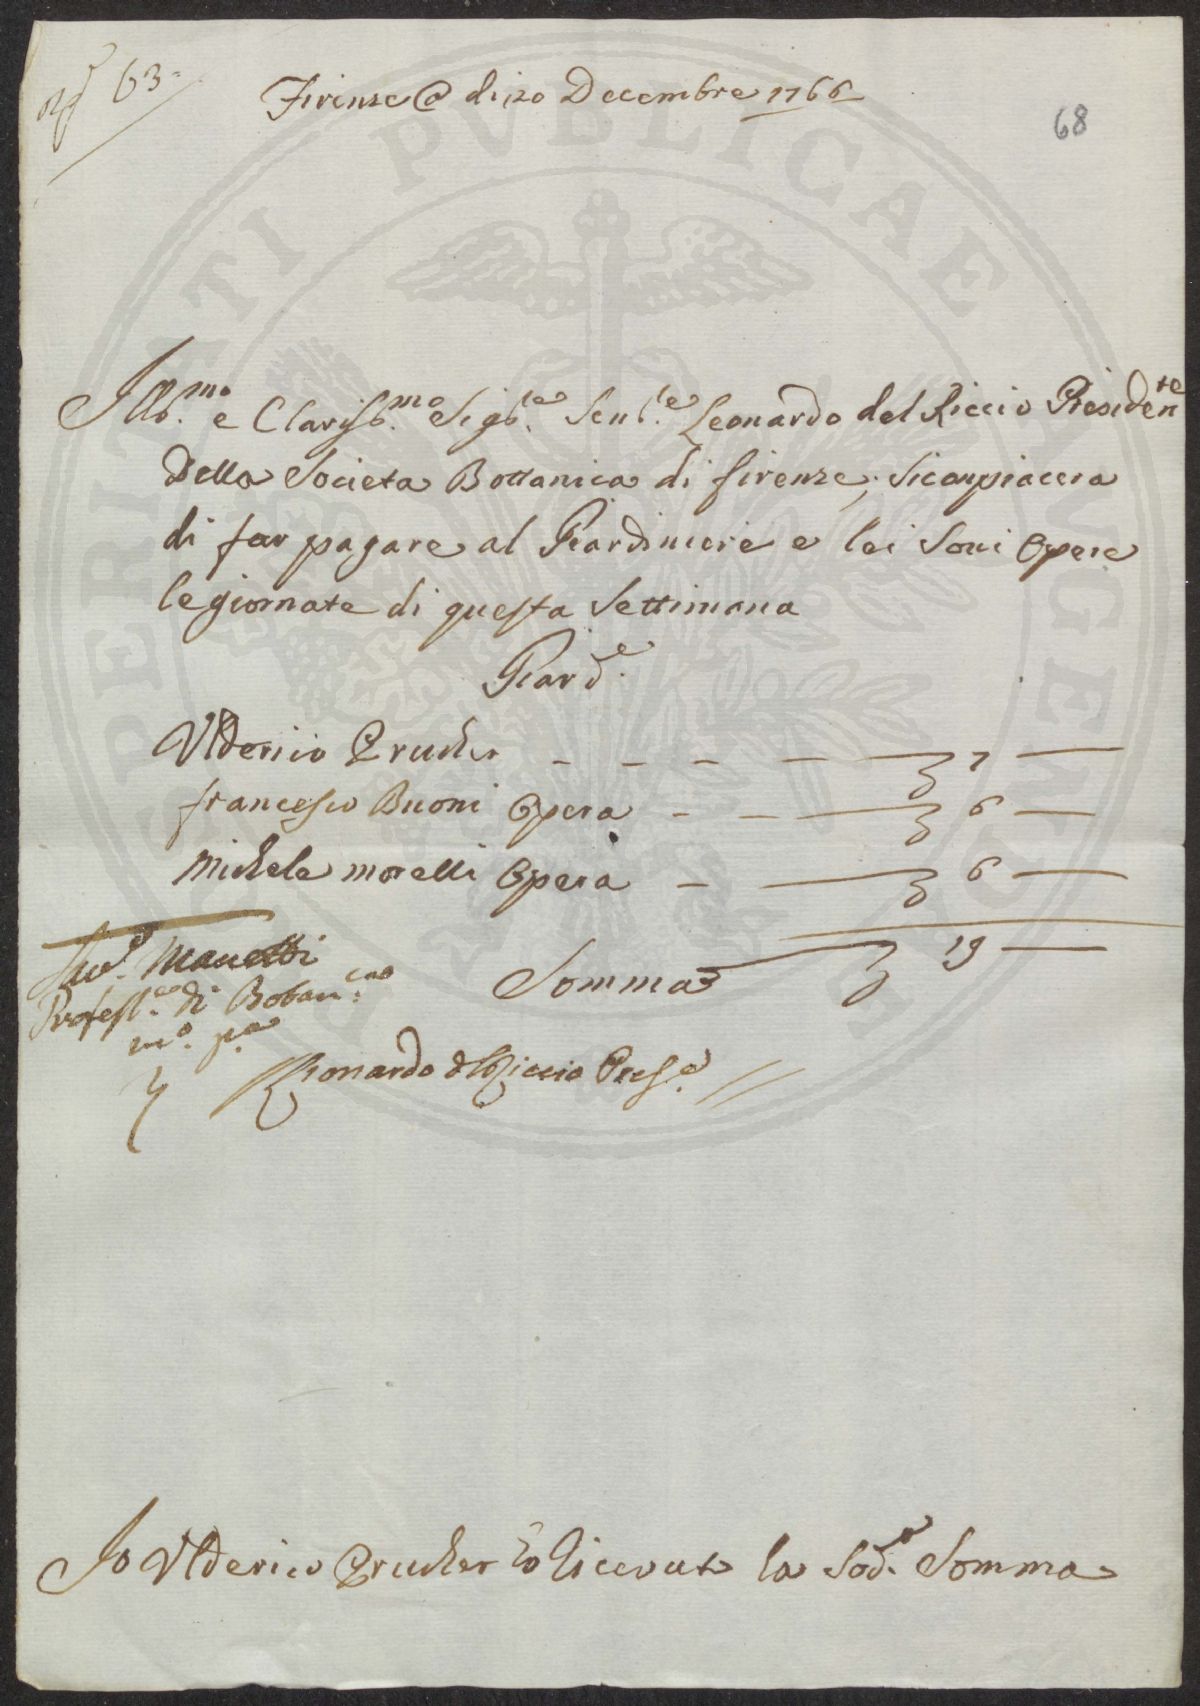 63
Firenze @ di 20 Decembre 1766
68
Ill.mo e Claris.mo Sig.re Sen.re Leonardo del Riccio Presidente
Della Societa Bottanica di firenze, Sicompiacera
di far pagare al Giardiniere e lei Soui Opere
le giornate di questa Settimana
Giard.e
Vlderico Prucker — — — — 7 —
francesco Buoni Opera — — — 6 —
Michele morelli Opera — — 6 —
Somma 19 —
Sav.o Manetti
Profess.e di Botan.ca
m.o p.a
Leonardo del Riccio Pres.e
Io Vlderico Prucker ho Riceuuto la Sod.a Somma
PERITI PVBLICAE